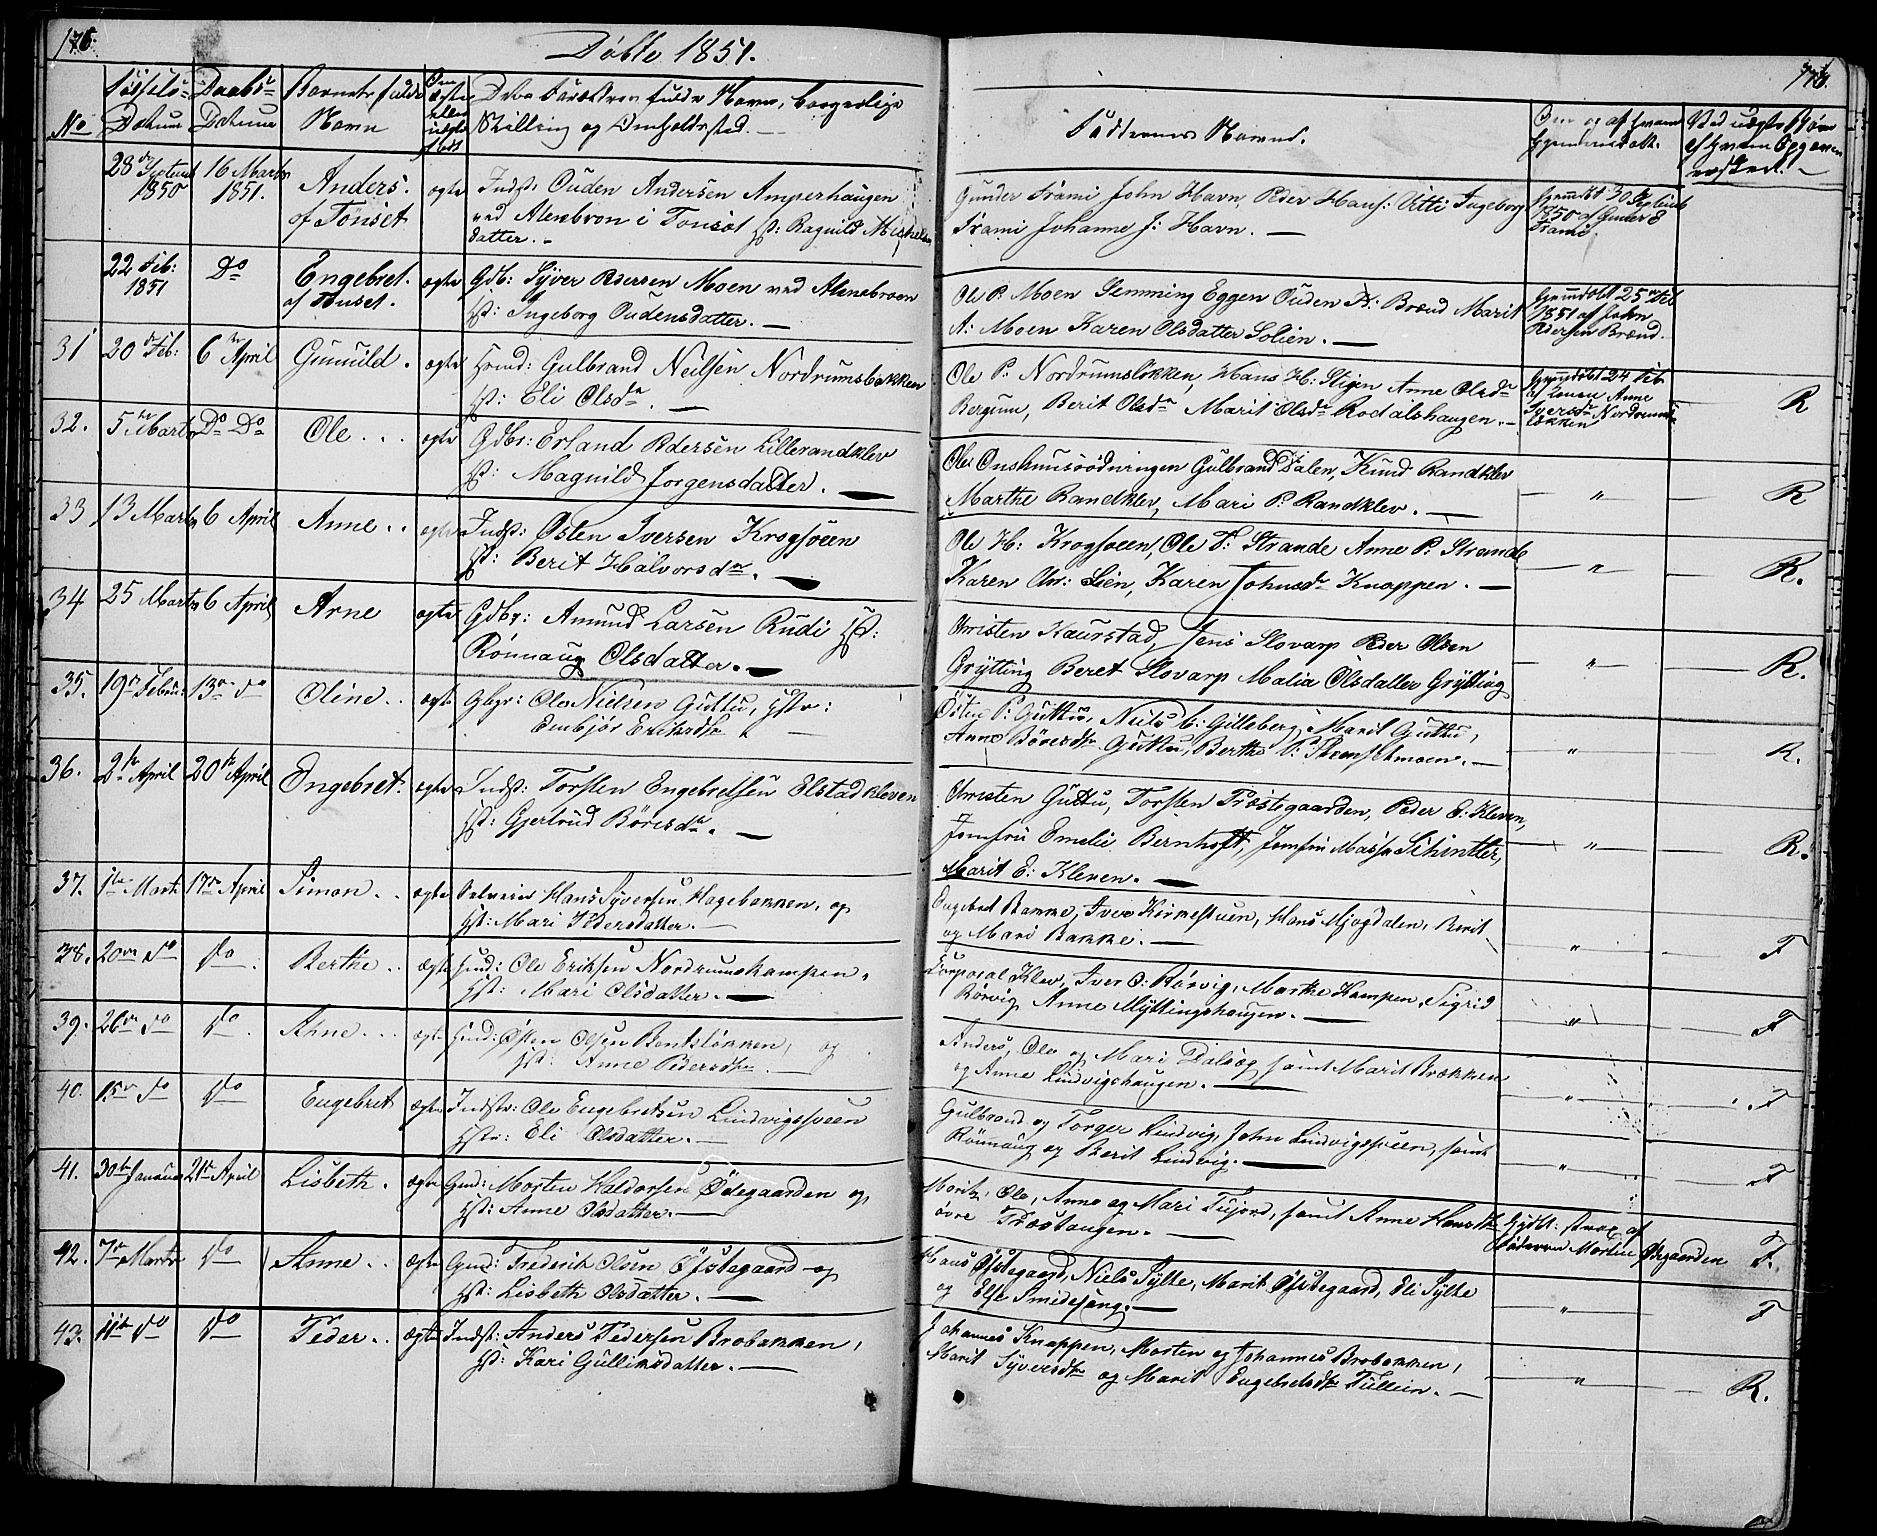 176.
Døbte 1851.
No
Fødsels-
Datum
Daabs-
Datum
Barnets fulde
Navn
Om
ægte
eller
uægte
født
Deres Forældres fulde Navn, borgerlige
Stilling og Opholdssted.
28de Septemb 1850
16 Marts 1851.
Anders.
af Tönset
ægte
Indst: Ouden Andersen Amperhaugen
ved Alenbroen i Tonsøt Hst: Ragnild Mickels
datter. —
22 Feb: 1851
Do
Engebret.
af Thuset.
ægte
Gdb: Syver Pedersen Moen ved Alenebroen
Hst: Ingeborg Oudensdatter. —
31
20de Feb:
6te April
Gunnild.
ægte
Huusmd: Gulbrand Neilsen Nordrumsbakken
Hst: Eli Olsdr. —
32.
5te Marts
Do Do
Ole...
ægte
Gdbr: Erland Pedersen Lillerandklev
Hst: Magnild Jorgensdatter. —
33
13 Marts
6 April
Anne..
ægte
Indst: Østen Iversen Krogsveen
Hst: Berit Halvorsdr. —
34
25 Marts
6 April
Arne
ægte
Gdbr: Amund Larsen Rudi Hst:
Rönnaug Olsdatter. —
35.
19de Februar
13de do
Oline..
ægte
Gbgr: Ole Nielsen Guttu, Hstr:
Embjør Eriksdtr —
36.
2de April
20de April
Engebret.
ægte
Indst: Torsten Engebretsen Elstadkleven
Hst: Gjertrud Börresdr. —
37.
1te Marts
17de April
Simon..
ægte
Hans Syversen Hagebakken, og
Hst: Mari Pedersdatter. —
38.
20de do
do
Berthe..
ægte
Huusmd: Ole Eriksen Nordrumskampen.
Hst: Mari Olsdatter. —
39.
26de do
do
Anne...
ægte
Huusmd: Østen Olsen Bentsløkken, og
Hst: Anne Pedersdtr. —
40.
15de do
do
Engebret
ægte
Indstr: Ole Engebretsen Lindvigssveen
Hstr: Eli Olsdatter. —
41.
30te Januar
21de April
Lisbeth.
ægte
Gmd: Morten Haldorsen Ødegaarden og
Hst: Anne Olsdatter. —
42.
7de Marts
do
Anne..
ægte
Gmd: Frederik Olsen Øfstegaard og
Hst: Lisbeth Olsdatter. —
43.
11te do
do
Peder..
ægte
Indst: Anders Pedersen Brobakken,
Hst: Kari Gulliksdatter. —
Faddernes Navne.
Om og af hvem
Hjemmedøbt.
Ved uægte Børn
af hvem Opgaven
er sked. —
Gunder Frami John Havn Peder Hans: Vitti Ingeborg
Frami Johanne J: Havn. —
Hjemdbt 30 Septemb
1850 af Gunder
Frami.
Ole P: Moen Flemming Eggen Ouden A: Brænd Marit
A: Moen Karen Olsdatter Solien. —
Hjemdøbt 25de Feb
1851 af John
Pedersen Brænd.
Ole P: Nordrumsløkken, Hans H: Stigen Anne Olsdr
Bergum, Berit Olsdr Marit Olsdr Rodalshaugen. —
Hjemdøbt 24 Feb
af Konen Anne
Iversdr Nordrums-
løkken
R
Ole Onshuusødningen Gulbrand Dalen, Knud Randklev
Marthe Randklev, Mari P: Randklev. —
— " —
R
Ole H: Krogsveen, Ole T: Strande Anne P: Strande
Karen Chr: Lien, Karen Johnsdr Knappen. —
— " —
R.
Christen Kaurstad, Jens Slovarp Peder Olsen
Grytting Beret Slovarp Malia Olsdatter Grytting
— " —
R.
Östen P: Guttu, Niels C: Gilleberg, Marit Guttu,
Anne Börresdtr Guttu, Berthe P: Strandsetmoen. —
— " —
R.
Christen Guttu, Torsten Præstegaarden, Peder E: Kleven,
Jomfru Emelie Bernhoft, Jomfru Schintler,
Marit E: Kleven. —
— " —
R.
Engebret Bakke, Iver Kirkestuen, Hans Mjogdalen, Berit
og Mari Bakke. —
— " —
F
Corporal Klev, Iver O: Rørvig, Marthe Kampen, Sigrid
Rörvig Anne Myttingshaugen. —
— " —
F
Anders, Ole og Mari Dalseg, samt Marit Brækken
og Anne Lindvigshaugen. —
— " —
F
Gulbrand og Torger Lindvig, John Lindvigssveen, samt
Rönnaug og Berit Lindvig. —
— " —
F
Moritz, Ole, Anne og Mari Tufjord, samt Anne Hansdtr
øvre Præsthaugen. —
Hjdbt: strax af
Faderen Morten Ødegaarden
F.
Hans Øfstegaard, Niels Sylte, Marit Øfstegaard, Eli Sylte
og Else Smideseng. —
— " —
F
Johannes Knappen, Morten og Johannes Brobakken,
Marit Syversdtr og Marit Engebretsdtr Tullien. —
— " —
R.